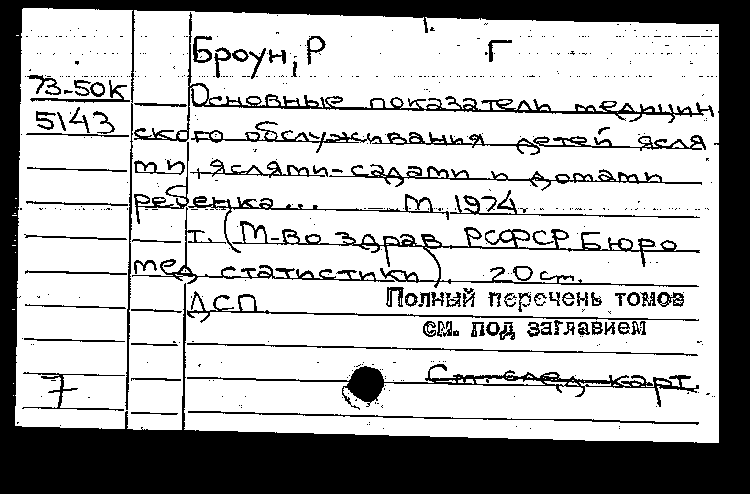 1.
Броун, Р Г
73-50К
5143
Основные показатель медицин
ского обслуживания детей ясля-
ми, яслями-садами и домами
ребенка... М., 1974.
т. (М-во здрав. РСФСР. Бюро
мед. статистики). 20 cm.
ДСП.
Полный перечень томов
см. под заглавием
См. след. карт.
7